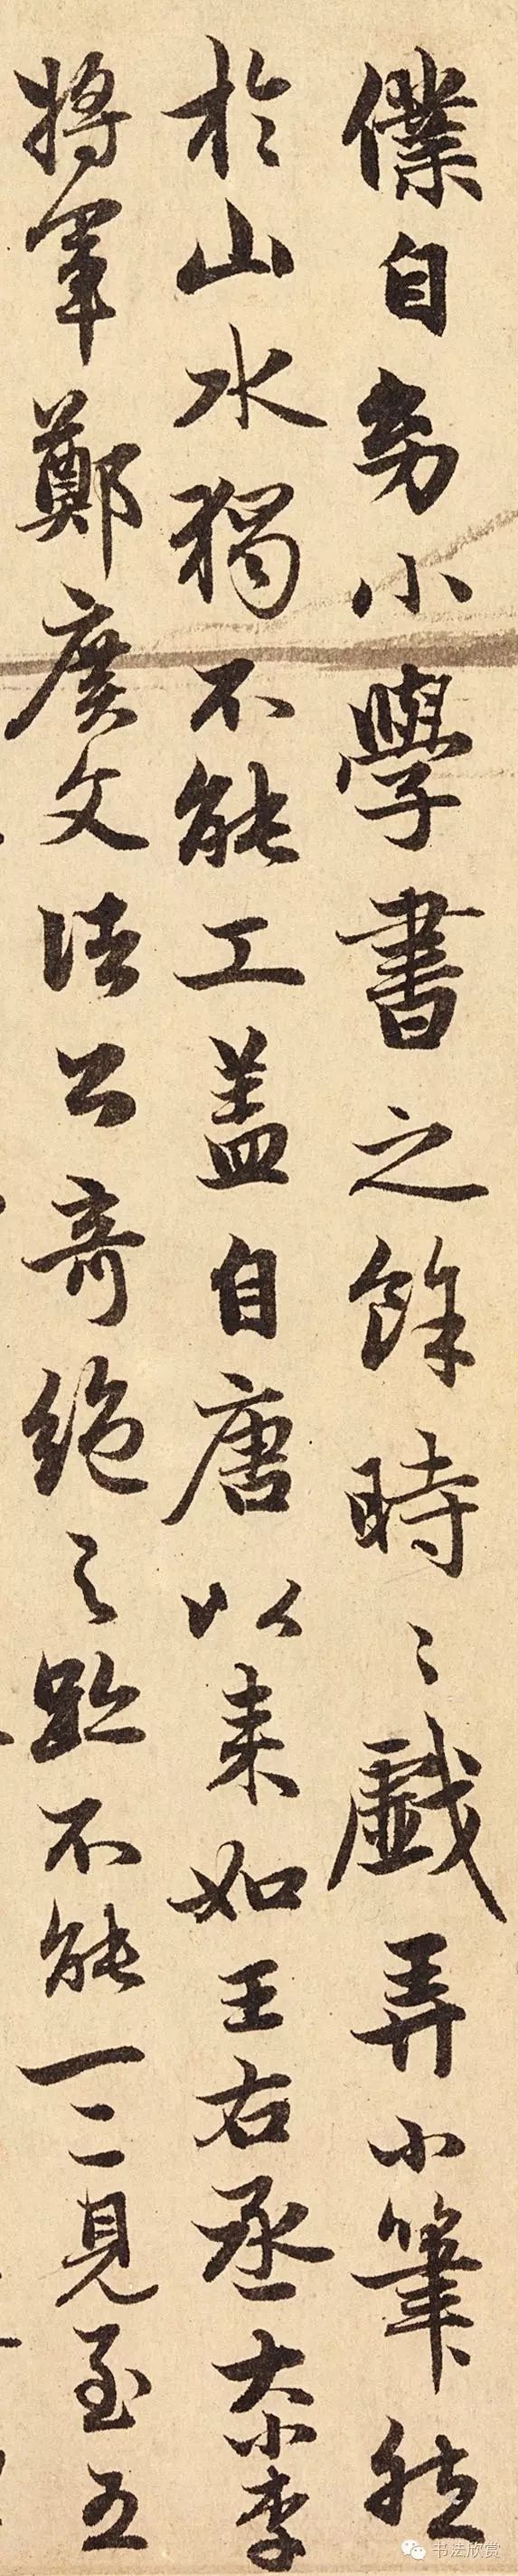 僕自幼小學書之餘時〻戲弄小筆然
於山水獨不能工盖自唐以来如王右丞大小李
將軍鄭廣文諸公奇絶之跡不能一二見至五
书法欣赏